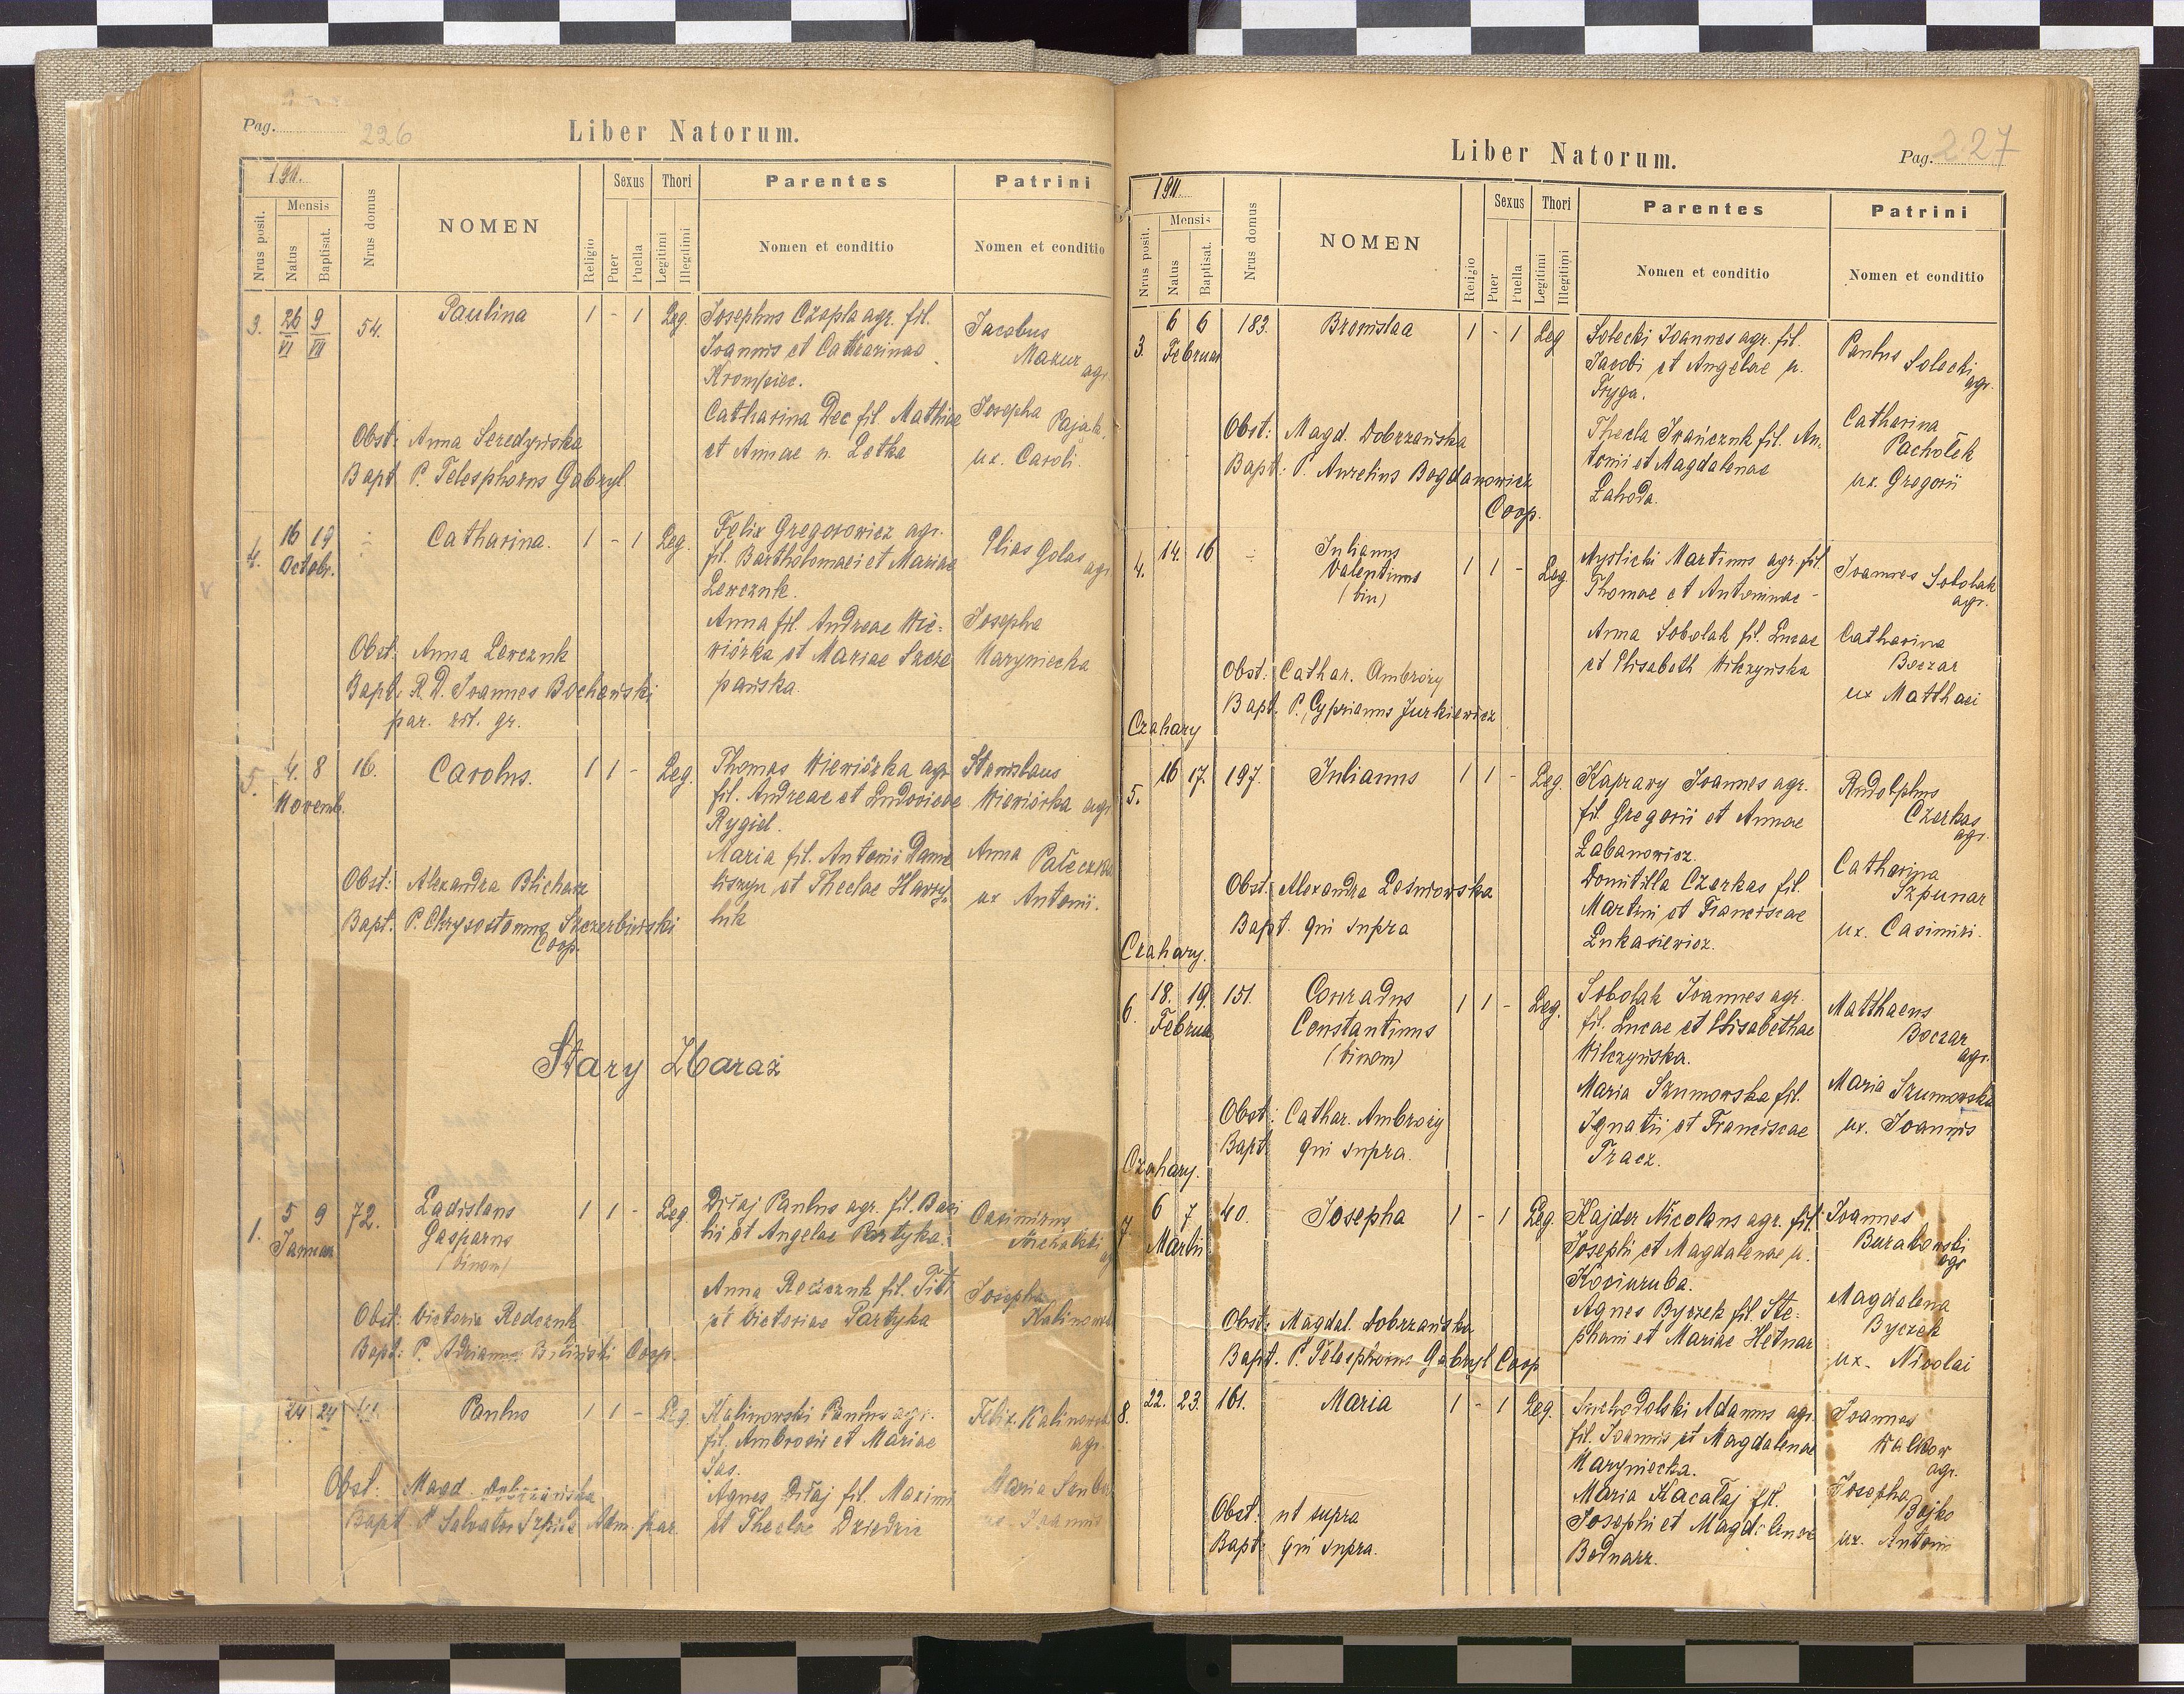 Pag. 226
Liber Natorum.
1911.
Nrus posit.
Mensis
Natus
Baptisat.
Nrus domus
NOMEN
Religio
Sexus
Puer
Puella
Thori
Legitimi
Illegitimi
Parentes
Nomen et conditio
Patrini
Nomen et conditio
3. 26/VI 9/VII 54. Paulina 1 - 1 Leg.
Josephus Czapla agr. fil.
Joannis et Catharinae
Krompiec.
Catharina Dec fil. Mathiae
et Annae n. Letka
Jacobus
Mazur agr.
Josepha Pająk
ux. Caroli.
Obst: Anna Seredyńska
Bapt P. Telesphorus Gabryl
4. 16 19 Octobr. Catharina. 1 - 1 Leg.
Felix Gregorowicz agr.
fil. Bartholomaei et Mariae
Lewczuk.
Anna fil. Andreae Wie-
wiórka et Mariae Szcze
pańska.
Elias Golas agr.
Josepha
Maryniecka
Obst: Anna Lewczuk
Bapt: R. D. Joannes Bochański
par. rit. gr.
5. 4. 8 Novemb. 16. Carolus. 1 1 - Leg.
Thomas Wiewiórka agr
fil. Andreae et Ludovicae
Rygiel.
Maria fil. Antonii Dani
liszyn et Theclae Hawry-
luk
Stanislaus
Wiewiórka agr
Anna Pałeczka
ux Antoni.
Obst: Alexandra Blicharz
Bapt: P. Chrysostomus Szczerbiński
Coop.
Stary Zbaraż
1. 5 9 Januar 72. Ladislaus
Gasparus
(binom)
1 1 - Leg.
Dziaj Paulus agr. fil. Basi
lii et Angelae Partyka.
Anna Redczuk fil. Titi
et Victoriae Partyka
Casimirus
Michalski
Josepha
Kalinowsk
Obst: Victoria Redczuk
Bapt: P. Adrianus Coop.
24 24 Paulus 1 1 - Leg.
Kalinowski Paulus agr.
fil. Ambrosii et Mariae
Jas.
Agnes Dziaj fil. Maximi
et Theclae Dziedzic
Felix Kalinowsk
agr.
Maria
ux. Joannis
Obst: Magd. Dobrzańska
Bapt P Salvator Adm. par.
Liber Natorum.
Pag. 227
1911.
Nrus posit.
Mensis
Natus
Baptisat.
Nrus domus
NOMEN
Religio
Sexus
Puer
Puella
Thori
Legitimi
Illegitimi
Parentes
Nomen et conditio
Patrini
Nomen et conditio
3. 6 6 Februar 183. Bronislaa 1 - 1 Leg
Solecki Joannes agr. fil.
Jacobi et Angelae n.
Fryga.
Thecla Iwańczuk fil. An-
tonii et Magdalenae
Łahoda.
Paulus Solecki
agr.
Catharina
Pachołek
ux. Gregorii
Obst: Magd. Dobrzańska
Bapt: P. Aurelius Bogdanowicz
Coop.
4. 14. 16 Julianus
Valentinus
(bin)
1 1 - Leg.
Myslicki Martinus agr. fil.
Thomae et Antoninae -
Anna Sobolak fil. Lucae
et Elisabeth Wilczyńska
Joannes Sobolak
agr.
Catharina
Boczar
ux Matthaei
Obst: Cathar. Ambroży
Bapt. P. Cyprianus Jurkiewicz
Czahary
5. 16 17. 197. Julianus 1 1 - Leg.
Kaprawy Joannes agr.
fil. Gregorii et Annae
Łabanowicz.
Domitilla Czerkas fil.
Martini et Franciscae
Łukasiewicz.
Rudolphus
Czerkas
agr.
Catharina
Szpunar
ux. Casimiri.
Obst: Alexandra Leśniowska
Bapt. qui supra
Czahary.
6. 18. 19. Februa 151. Conradus
Constantinus
(binom)
1 1 - Leg.
Sobolak Joannes agr.
fil. Lucae et Elisabethae
Wilczyńska.
Maria Szumowska fil.
Ignatii et Franciscae
Tracz.
Matthaeus
Boczar
agr.
Maria Szumowska
ux. Joannis
Obst: Cathar. Ambroży
Bapt. qui supra.
Czahary.
7 6 7 Martii 40. Josepha 1 - 1 Leg.
Kajder Nicolaus agr. fil.
Josephi et Magdalenae n.
Kociuruba.
Agnes Byczek fil. Ste-
phani et Mariae Hetnar
Joannes
Burakowski
agr
Magdalena
Byczek
ux. Nicolai
Obst: Magdal. Dobrzańska
Bapt. P. Telesphorus Gabryl Coop
8. 22. 23. 161. Maria 1 - 1 Leg.
Suchodolski Adamus agr.
fil. Joannis et Magdalenae
Maryniecka.
Maria Kacałaj fil.
Josephi et Magdalenae
Bednarz.
Joannes
Walkow
agr.
Josepha
Bojko
ux. Antonii
Obst: ut supra
Bapt: qui supra.